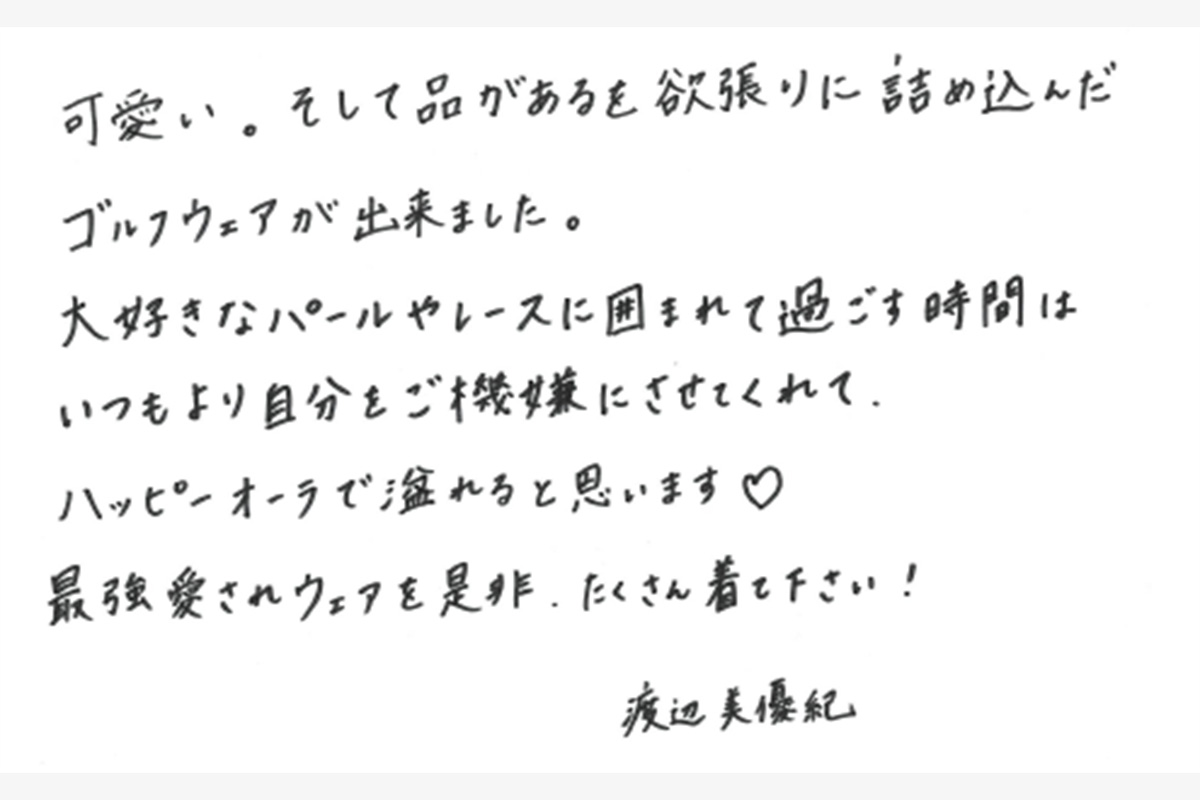 可愛い。そして品があるを欲張りに詰め込んだ
ゴルフウェアが出来ました。
大好きなパールやレースに囲まれて過ごす時間は
いつもより自分をご機嫌にさせてくれて.
ハッピーオーラで溢れると思います♡
最強愛されウェアを是非.たくさん着て下さい!
渡辺美優紀